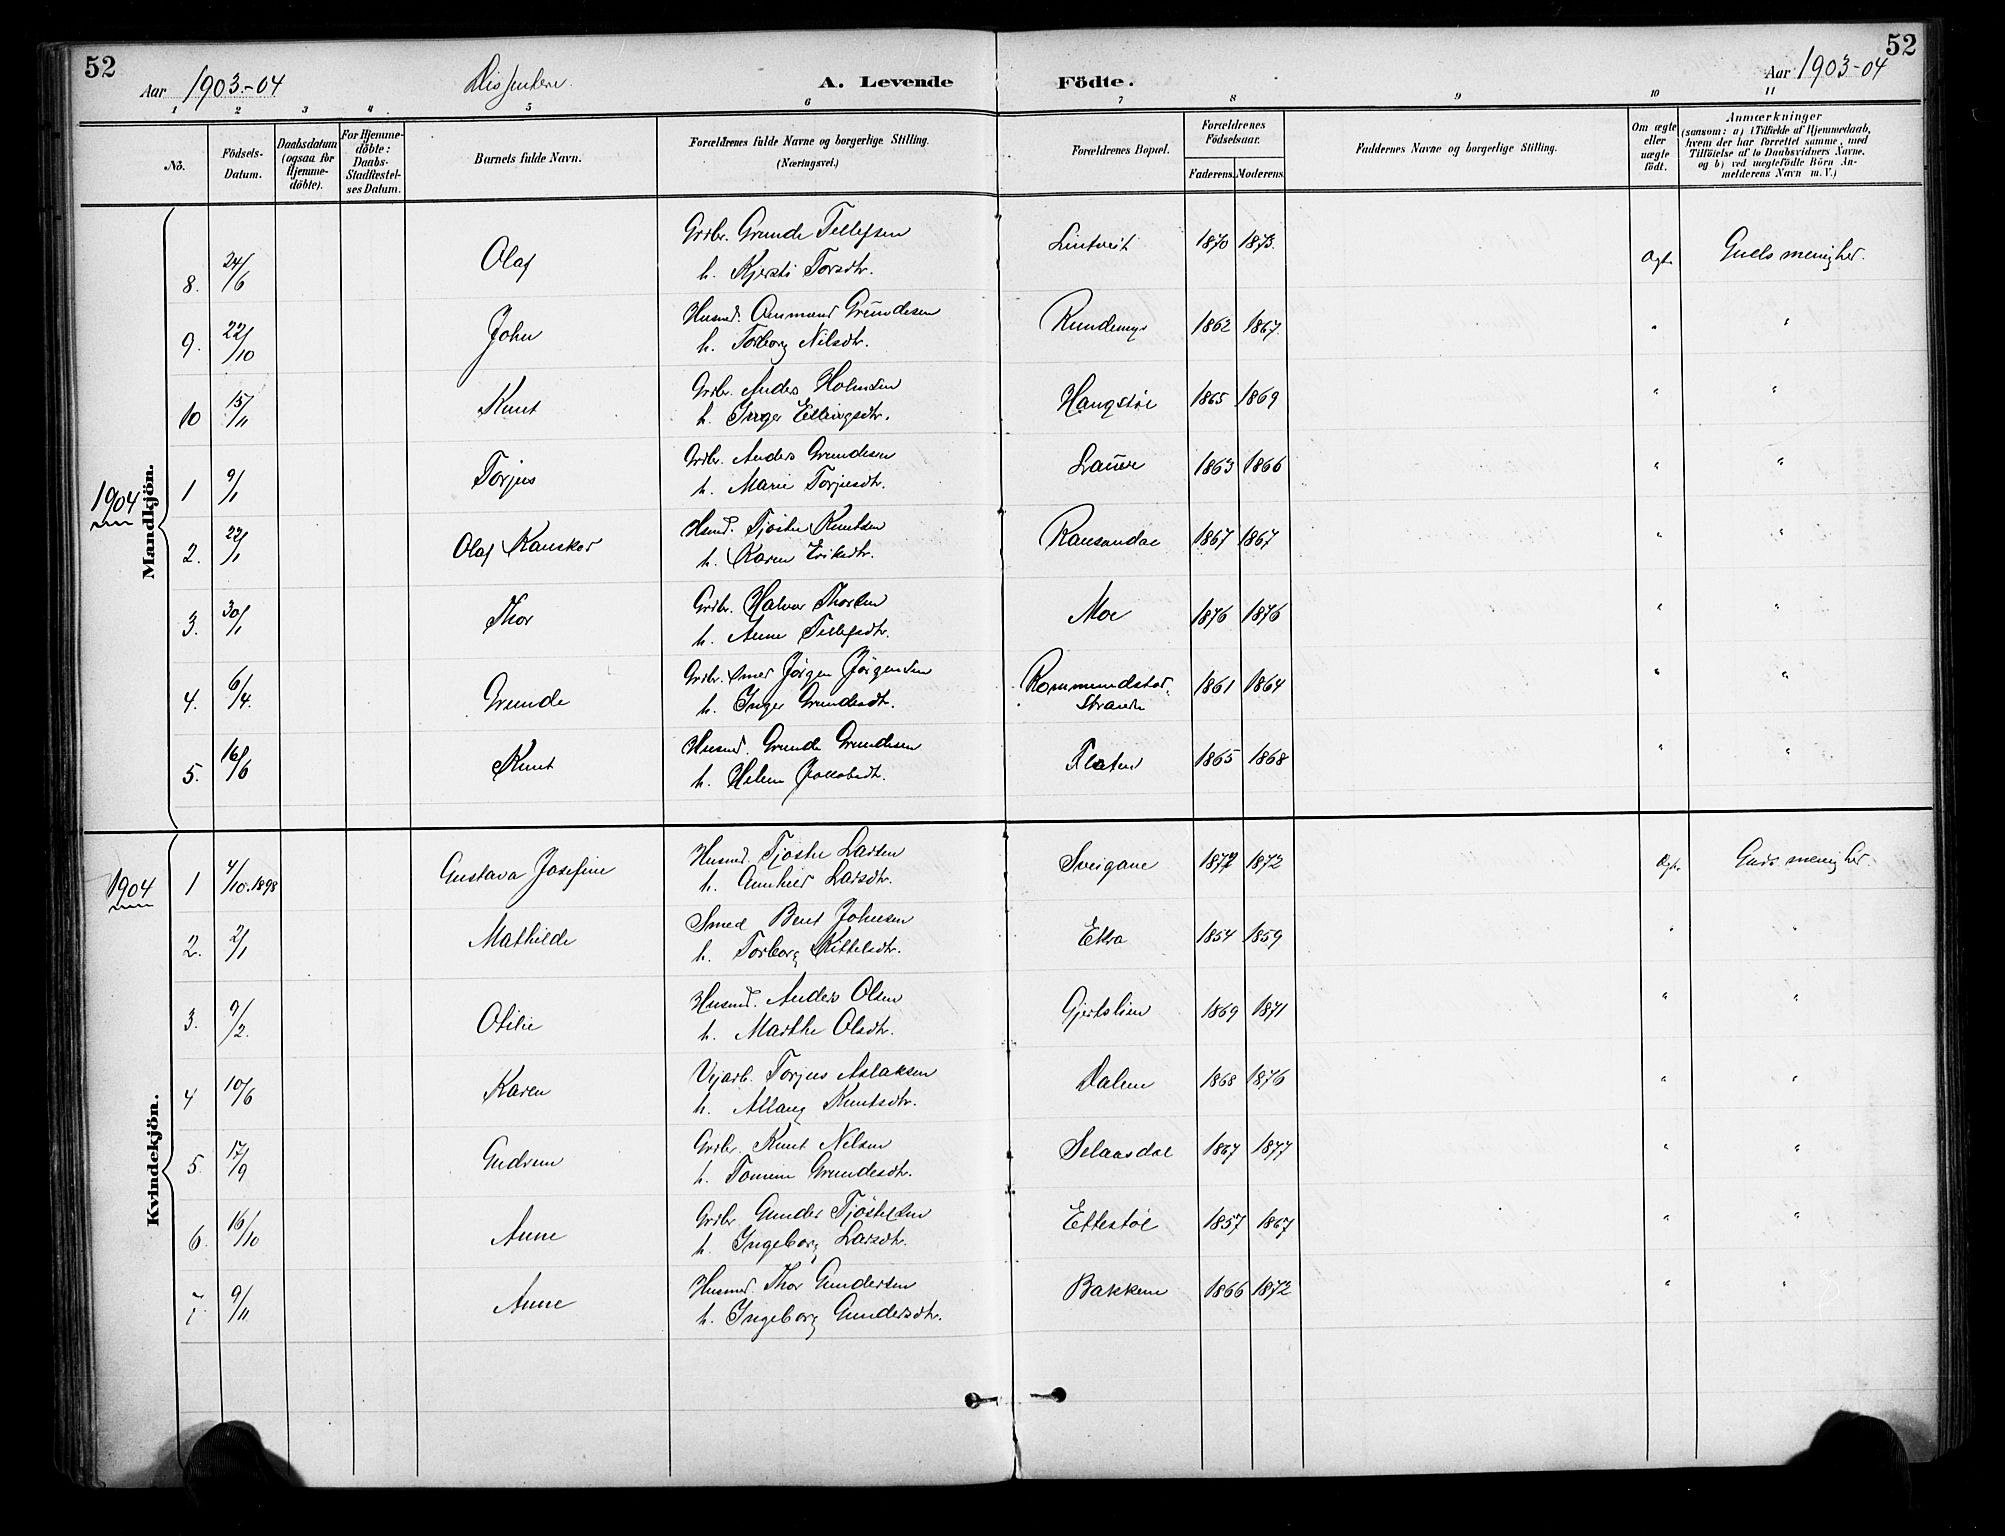 52
Aar 1903-04
Dissentere.
A. Levende
Födte.
Aar 1903-04
52
1 2 3 4 5 6 7 8 9 10 11
Nô.
Födsels-Datum.
Daabsdatum (ogsaa for Hjemme-döbte).
For Hjemme-döbte: Daabs-Stadfestel-ses Datum.
Barnets fulde Navn.
Forældrenes fulde Navne og borgerlige Stilling. (Næringsvei.)
Forældrenes Bopæl.
Forældrenes Födselsaar.
Faderens. Moderens.
Faddernes Navne og borgerlige Stilling.
Om ægte eller uægte födt.
Anmærkninger (saasom: a) i Tilfælde af Hjemmedaab, hvem der har forrettet samme, med Tilföielse af to Daabsvidners Navne, og b) ved uægtefödte Börn An-melderens Navn m. V.)
Mandkjön.
8. 24/6 Olaf Grdbr. Grunde Tellefsen Lintveit 1870 1873. Ægte Guds menighed.
h. Kjersti Torsdtr.
9. 22/10 John Husmd. Ommund Grundesen Rundemyr 1862 1867. " "
h. Torborg Nilsdtr.
10 15/11 Knut Grdbr. Anders Holmsen Haugstøl 1865 1869 " "
h. Inger Ellingsdtr.
1904
1 9/1 Torjus Grdbr. Anders Grundesen Lauve 1863 1866 " "
h. Marie Torjusdtr.
2. 22/1 Olaf Ranskor Husmd. Tjøstel Knutsen Ransandal 1867 1867 " "
h. Karen Eriksdtr.
3. 30/1 Thor Grdbr. Halvor Thorsen Moe 1876 1876 " "
h. Anne Tellefsdtr.
4. 6/4. Grunde Grdbr. Smed Jørgen Jørgensen Rommundstad. 1861 1864 " "
h. Inger Grundesdtr. Strande
5. 16/6 Knut Husmd. Grunde Grundesen Flaten 1865 1868 " "
h. Helene Jakobsdtr.
Kvindekjön.
1904
1 4/10. 1898 Gustava Josefine Husmd. Tjøstel Larsen Sveigane 1872 1872 Ægte Guds menighed.
h. Gunhild Larsdtr.
2. 2/1 Mathilde Smed Bent Johnsen Ettra 1854 1859 " "
h. Torborg Kittelsdtr.
3. 9/2. Otilie Husmd. Anders Olsen Gjertslien 1869 1871 " "
h. Marthe Olsdtr.
4 10/6 Karen Vejarb. Torjus Aslaksen Dalene 1868 1876 " "
h. Aslaug Knutsdtr.
5. 17/9 Gudrun Grdbr. Knut Nilsen Selaasdal 1867 1877 " "
h. Tomine Grundesdtr.
6. 16/10 Anne Grdbr. Gunder Tjøstelsen Ettestøl 1857 1867 " "
h. Ingeborg Larsdtr.
7. 9/11 Anne Husmd. Thor Gundersen Bakkene 1866 1872 " "
h. Ingeborg Gundersdtr.